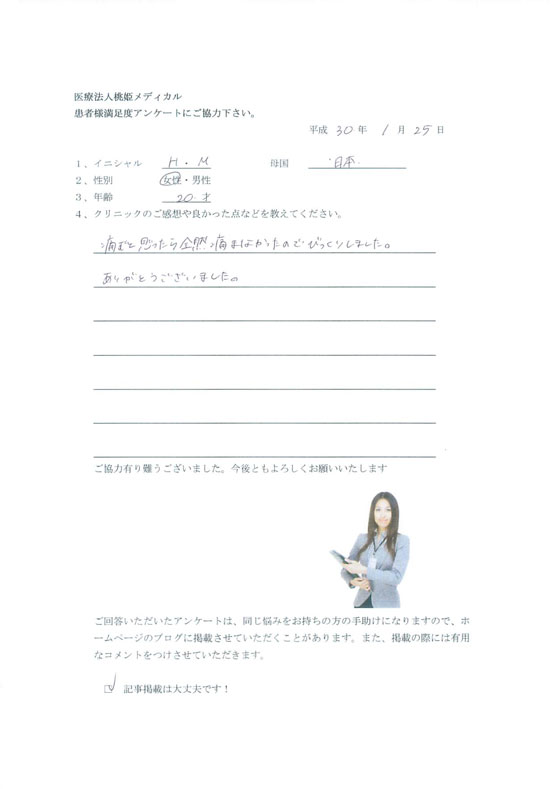 医療法人桃姫メディカル
患者様満足度アンケートにご協力下さい。
平成 30 年 1 月 25 日
1、イニシャル H・M 母国 日本
2、性別 女性・男性
3、年齢 20才
4、クリニックのご感想や良かった点などを教えてください。
痛むと思ったら全然痛まなかったのでびっくりしました。
ありがとうございました。
ご協力有り難うございました。今後ともよろしくお願いいたします
ご回答いただいたアンケートは、同じ悩みをお持ちの方の手助けになりますので、ホ
ームページのブログに掲載させていただくことがあります。また、掲載の際には有用
なコメントをつけさせていただきます。
☑ 記事掲載は大丈夫です！